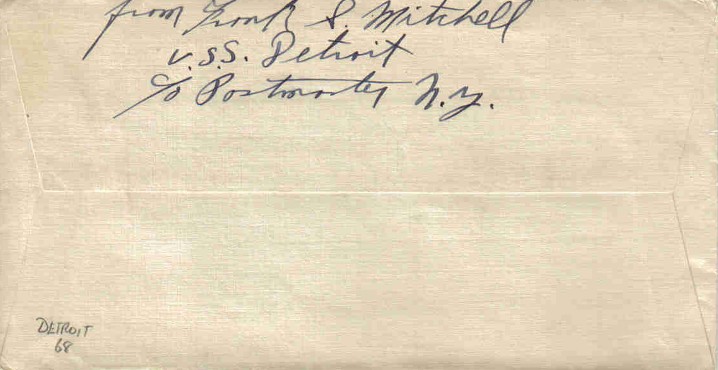 from Frank S. Mitchell
U.S.S. Detroit
c/o Postmaster N.Y.
DETROIT
68